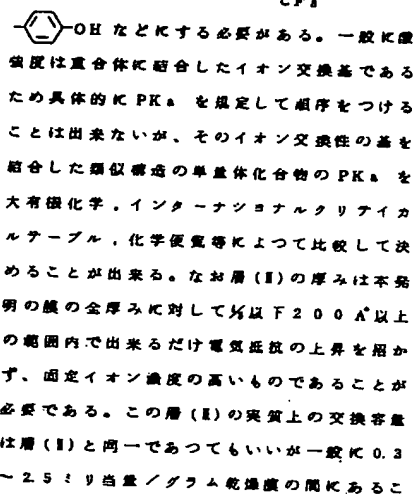 CF₃
-OH などにする必要がある。一般に酸
強度は重合体に結合したイオン交換基である
ため具体的にPKa を規定して順序をつける
ことは出来ないが、そのイオン交換性の基を
結合した類似構造の単量体化合物のPKa を
大有機化学,インターナショナルクリテイカ
ルテーブル,化学便覧等によつて比較して決
めることが出来る。なお層(Ⅱ)の厚みは本発
明の膜の全厚みに対して½以下200Å以上
の範囲内で出来るだけ電気抵抗の上昇を招か
ず、固定イオン濃度の高いものであることが
必要である。この層(Ⅱ)の実質上の交換容量
は層(Ⅰ)と同一であつてもいいが一般に0.3
〜2.5ミリ当量/グラム乾燥膜の間にあるこ